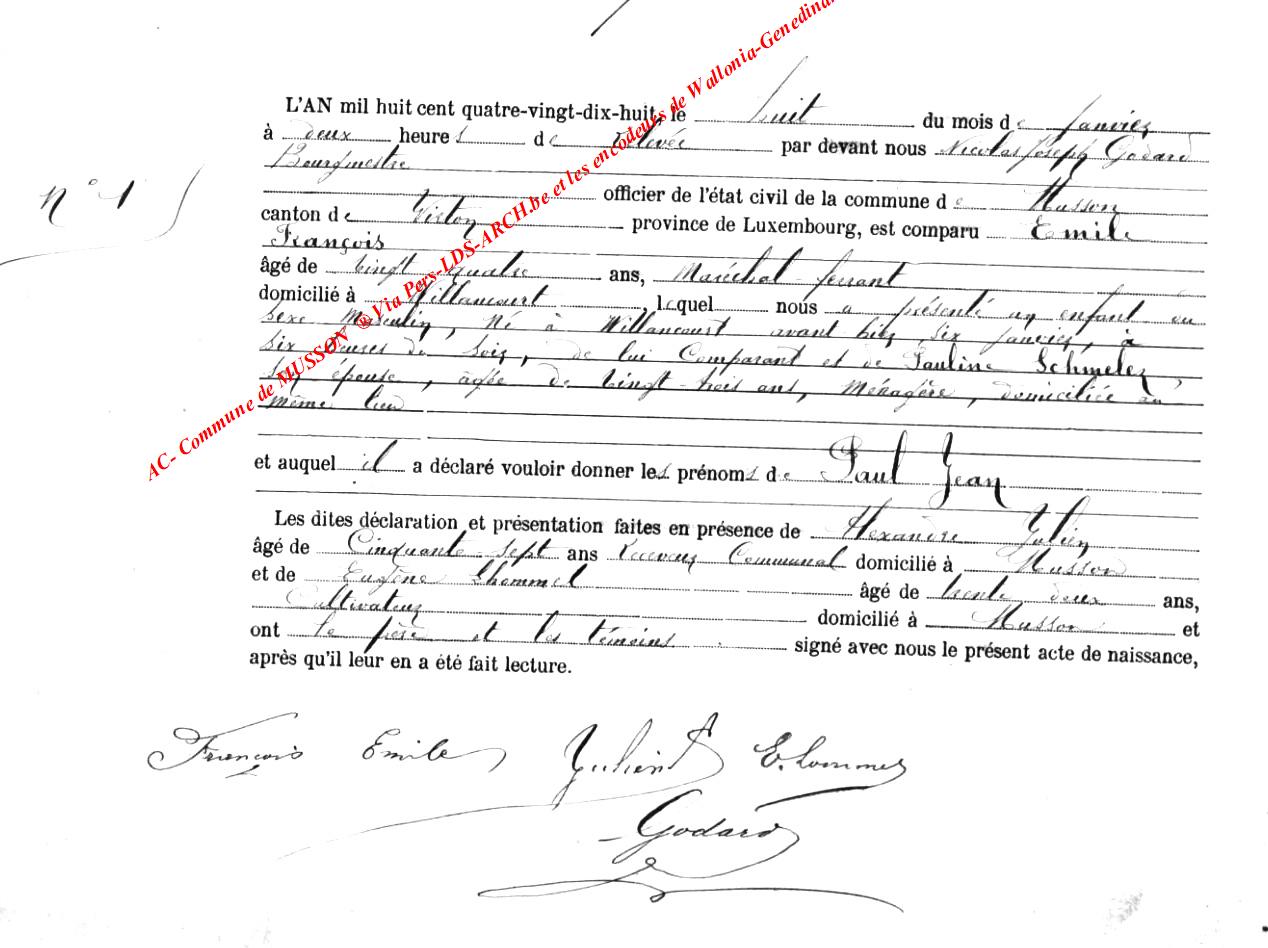 L'AN mil huit cent quatre-vingt-dix-huit, le huit du mois de Janvier
à deux heures de relevée par devant nous Nicolas Joseph Godard
Bourgmestre
N° 1 officier de l'état civil de la commune de Musson
canton de Virton province de Luxembourg, est comparu Emile
François
âgé de vingt quatre ans, Maréchal ferrant
domicilié à Willancourt, lequel nous a présenté un enfant du
sexe Masculin, Né à Willancourt avant hier, six janvier, à
six heures du soir, de lui Comparant et de Pauline Schmeler,
son épouse, agée de vingt trois ans, Ménagère, domiciliée au
même lieu
et auquel il a déclaré vouloir donner les prénoms de Paul Jean
Les dites déclaration et présentation faites en présence de Alexandre Julien
âgé de Cinquante sept ans Receveur Communal domicilié à Musson
et de Eugène Lhommel âgé de trente deux ans,
Cultivateur domicilié à Musson et
ont le père et les témoins signé avec nous le présent acte de naissance,
après qu'il leur en a été fait lecture.
François Emile Julien E. Lommel
Godard
AC- Commune de MUSSON ® Via Pers-LDS-ARCH.be et les encodeurs de Wallonia-Genedinan